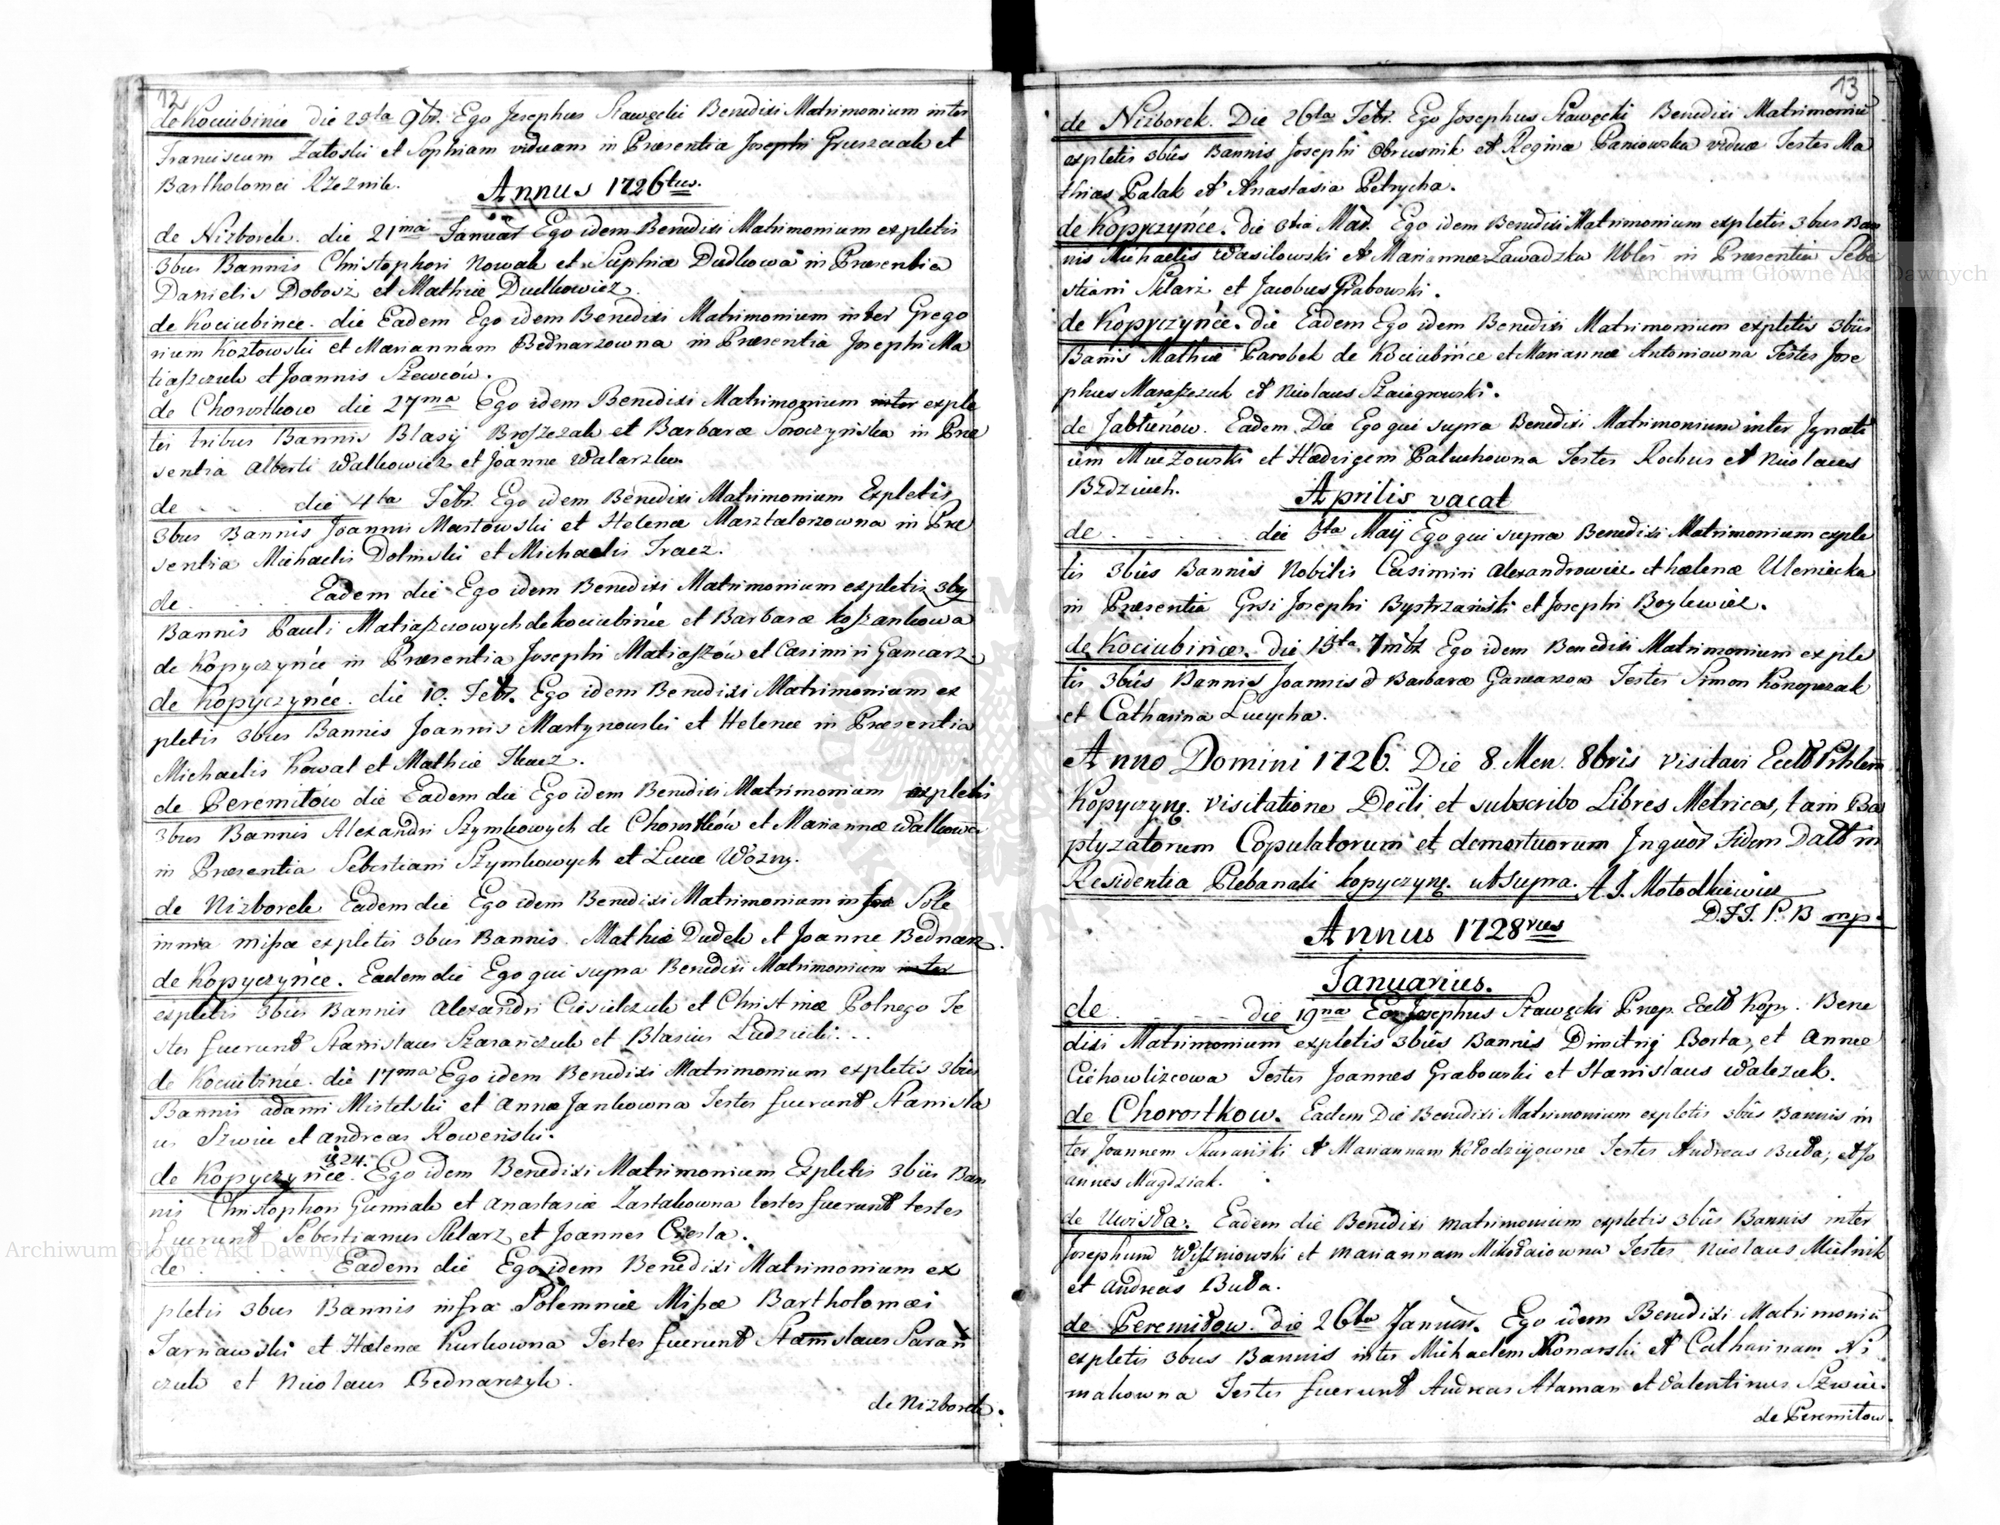 12
de Kociubińce die 29ta 9br. Ego Josephus Stawęcki Benedixi Matrimonium inter
Franciscum Zatoski et Sophiam viduam in Præsentia Josephi Gruszczak et
Bartholomei Rzeznik.
Annus 1726tus.
de Nizborek. die 21ma Januar Ego idem Benedixi Matrimonium expletis
3bus Bannis Christophori Nowak et Suphiæ Dudkowa in Præsentia
Danielis Dobosz et Mathiæ Dudkowicz.
de Kociubince. die Eadem Ego idem Benedixi Matrimonium inter Grego
rium Kozłowski et Mariannam Bednarzowna in Præsentia Josephi Ma
tiaszczuk et Joannis Szewców.
de Chorostkow die 27ma Ego idem Benedixi Matrimonium inter exple
tis tribus Bannis Blasij Broszczak et Barbaræ Soroczyńska in Præ
sentia Alberti Walkowicz et Joanne Walarzka.
de . . . . die 4ta Febr. Ego idem Benedixi Matrimonium Expletis
3bus Bannis Joannis Martowski et Helenæ Masztalerzowna in Præ
sentia Michaelis Dolinski et Michaelis Tracz.
de . . . . Eadem die Ego idem Benedixi Matrimonium expletis 3bus
Bannis Pauli Matiaszczowych de Kociubińce et Barbaræ Koszankowa
de Kopyczyńce in Præsentia Josephi Matiaszów et Casimiri Gancarz.
de Kopyczyńce. die 10. Febr. Ego idem Benedixi Matrimonium ex
pletis 3bus Bannis Joannis Martynowski et Helenæ in Præsentia
Michaelis Kowal et Mathiæ Tkacz.
de Peremiłów die Eadem die Ego idem Benedixi Matrimonium expletis
3bus Bannis Alexandri Szymkowych de Chorostków et Mariannæ Walkowa
in Præsentia Sebestiani Szymkowych et Lucæ Wozny.
de Nizborek Eadem die Ego idem Benedixi Matrimonium infra Sole
innia missæ expletis 3bus Bannis. Mathiæ Dudek et Joanne Bednarz.
de Kopyczyńce. Eadem die Ego qui supra Benedixi Matrimonium inter
expletis 3bus Bannis Alexandri Ciesielczuk et Christinæ Polnego Te
stes fuerunt Stanislaus Szarańczuk et Blasius Ludzicki...
de Kociubińce. die 17ma Ego idem Benedixi Matrimonium expletis 3bus
Bannis adami Mistelski et Annæ Jankowna Testes fuerunt Stanisla
us Szwiec et andreas Roweński.
de Kopyczyńce. d 24. Ego idem Benedixi Matrimonium Expletis 3bus Ban
nis Christophori Gumniak et Anastasiæ Zastakowna testes fuerunt testes
fuerunt Sebestianus Sklarz et Joannes Ciesla.
de . . . . Eadem die Ego idem Benedixi Matrimonium ex
pletis 3bus Bannis infra Solemniæ Missæ Bartholomæi
Tarnawski et Helenæ Kurkowna Testes fuerunt Stanislaus Sarań
czuk et Nicolaus Bednarczyk.
de Nizborek.
13
de Nizborek. Die 26ta Febr. Ego Josephus Stawęcki Benedixi Matrimoniū
expletis 3bus Bannis Josephi Obrusnik et Reginæ Paniowska viduæ Testes Ma
thias Palak et Anastasia Petrycha.
de Kopyczyńce. die 3tia Mar. Ego idem Benedixi Matrimonium expletis 3bus Ban
nis Michaelis Wasilowski et Mariannæ Zawadzka Nbles in Præsentia Sebe
stiani Sklarz et Jacobus Grabowski.
de Kopyczyńce. die Eadem Ego idem Benedixi Matrimonium expletis 3bus
Banis Mathiæ Parobek de Kociubińce et Mariannæ Antoniowna Testes Jose
phus Maraszczuk et Nicolaus Szaiegrowski.
de Jabłenów. Eadem Die Ego qui supra Benedixi Matrimonium inter Ignati
um Muczowski et Hedvigem Paluchowna Testes Rochus et Nicolaus
Bzdziuch.
Aprilis vacat
de . . . . die 6ta Maij Ego qui supra Benedixi Matrimonium exple
tis 3bus Bannis Nobilis Casimiri Alexandrowicz et hælenæ Uleniecka
in Præsentia Grsi Josephi Bystrzański et Josephi Boglewicz.
de Kociubińce. die 15ta 7mbr Ego idem Benedixi Matrimonium exple
tis 3bus Bannis Joannis et Barbaræ Ganzarzow Testes Simon Konopczak
et Catharina Lucycha.
Anno Domini 1726. Die 8. Men. 8bris visitavi Eccl Prhlem
Kopyczyn. visitatione Decli et subscribo Libros Metricos, tam Ba
ptyzatorum Copulatorum et demortuorum In quor Fidem Datt in
Residentia Plebanali Kopyczyn. ut supra. A. J. Mołodkiewicz
D.F.J. P. B mp.
Annus 1728vus
Januarius.
de . . . . die 19na Ego Josephus Stawęcki Præp. Eccl Kopy. Bene
dixi Matrimonium expletis 3bus Bannis Dimitrij Borta, et Annæ
Cichowlizcowa Testes Joannes Grabowski et Stanislaus Walczuk.
de Chorostkow. Eadem Die Benedixi Matrimonium expletis 3bus Bannis in
ter Joannem Skurański et Mariannam Kłodziijowne Testes Andreas Buda, et Jo
annes Magdziak.
de Uwisła. Eadem die Benedixi matrimonium expletis 3bus Bannis inter
Josephum Wiszniowski et Mariannam Mikołaiowna Testes Nicolaus Mielnik
et Andreas Buda.
de Peremiłow. die 26ta Januar. Ego idem Benedixi Matrimoniū
expletis 3bus Bannis inter Michaelem Konarski et Catharinam Ni
makowna Testes fuerunt Andreas Ataman et Valentinus Szwiec.
de Peremiłow.
Archiwum Główne Akt Dawnych
Archiwum Główne Akt Dawnych